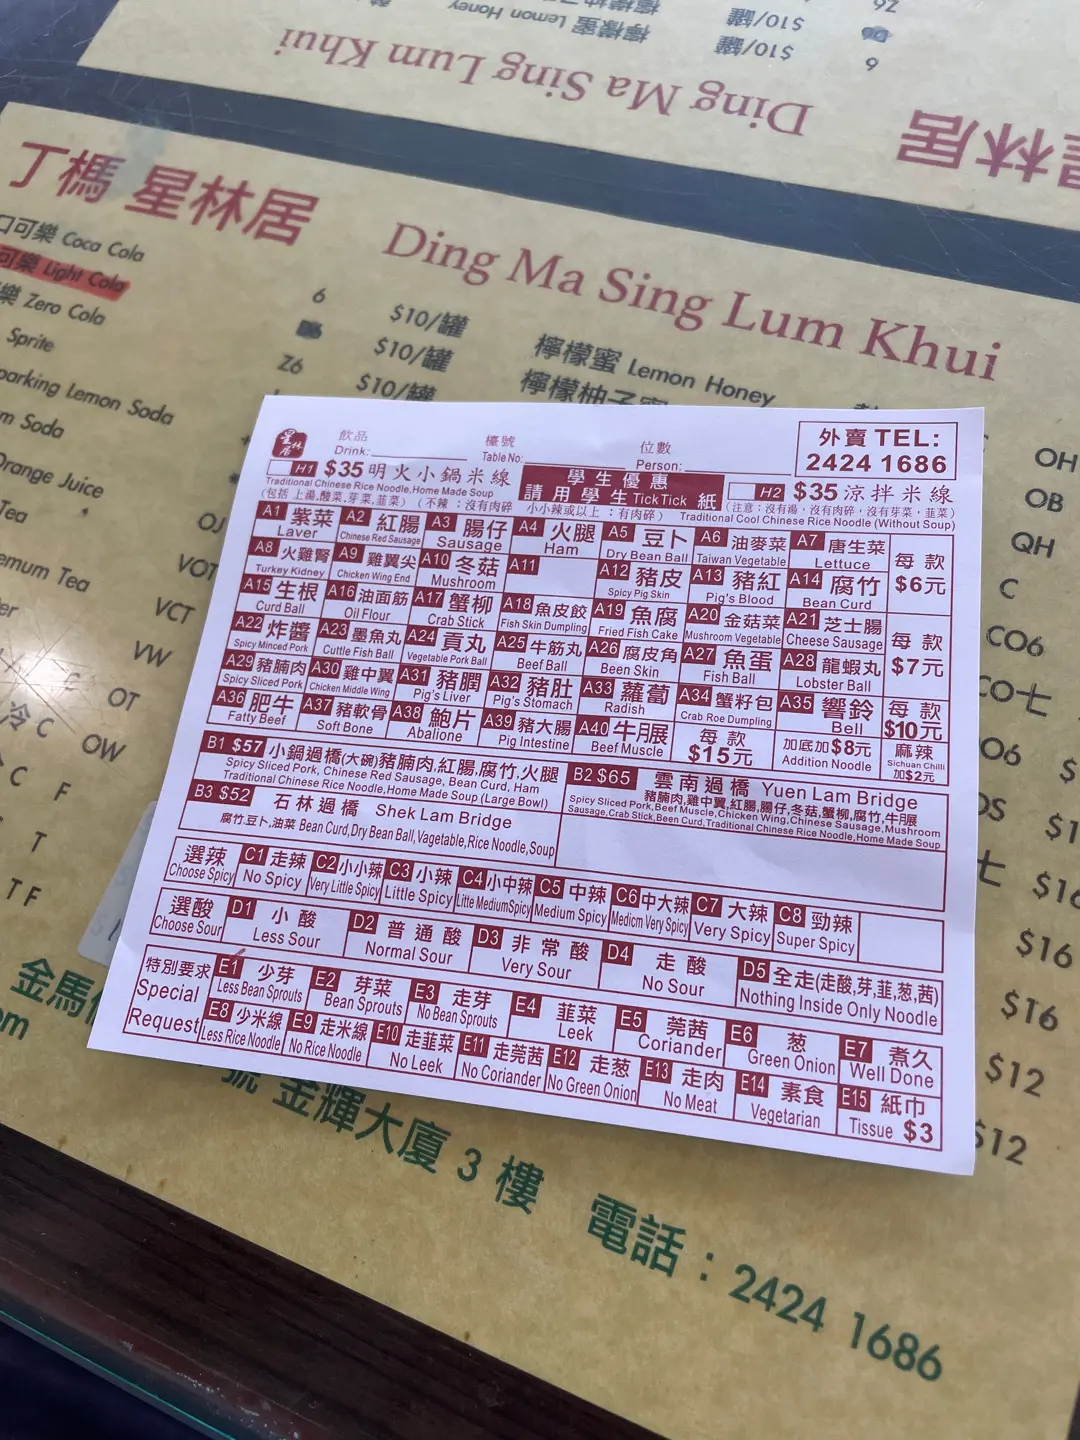 Z6
$10/罐
檸檬蜜 Lemon Honey
$10/罐
6
Ding Ma Sing Lum Khui
星林居
丁榪 星林居
Ding Ma Sing Lum Khui
口可樂 Coca Cola
6
$10/罐
檸檬蜜 Lemon Honey
可樂 Light Cola
$10/罐
檸檬柚子蜜
樂 Zero Cola
Z6
$10/罐
Sprite
parking Lemon Soda
m Soda
Orange Juice
OJ
Tea
VOT
emum Tea
VCT
VW
OT
冷 C
OW
C
F
T
TF
OH
OB
QH
C
CO6
CO七
O6
OS
七
$16
$16
$16
$12
$12
星林居
飲品
Drink:
檯號
Table No:
位數
Person:
外賣 TEL:
2424 1686
H1 $35 明火小鍋米線
Traditional Chinese Rice Noodle,Home Made Soup
(包括 上湯,酸菜,芽菜,韮菜) (不辣 : 沒有肉碎 小小辣或以上 : 有肉碎)
學生優惠
請用學生TickTick 紙
H2 $35 涼拌米線
(注意 : 沒有湯, 沒有肉碎, 沒有芽菜, 韮菜)
Traditional Cool Chinese Rice Noodle (Without Soup)
A1 紫菜 Laver
A2 紅腸 Chinese Red Sausage
A3 腸仔 Sausage
A4 火腿 Ham
A5 豆卜 Dry Bean Ball
A6 油麥菜 Taiwan Vegetable
A7 唐生菜 Lettuce
每款 $6元
A8 火雞腎 Turkey Kidney
A9 雞翼尖 Chicken Wing End
A10 冬菇 Mushroom
A11
A12 豬皮 Spicy Pig Skin
A13 豬紅 Pig's Blood
A14 腐竹 Bean Curd
A15 生根 Curd Ball
A16 油面筋 Oil Flour
A17 蟹柳 Crab Stick
A18 魚皮餃 Fish Skin Dumpling
A19 魚腐 Fried Fish Cake
A20 金菇菜 Mushroom Vegetable
A21 芝士腸 Cheese Sausage
每款 $7元
A22 炸醬 Spicy Minced Pork
A23 墨魚丸 Cuttle Fish Ball
A24 貢丸 Vegetable Pork Ball
A25 牛筋丸 Beef Ball
A26 腐皮角 Been Skin
A27 魚蛋 Fish Ball
A28 龍蝦丸 Lobster Ball
A29 豬腩肉 Spicy Sliced Pork
A30 雞中翼 Chicken Middle Wing
A31 豬膶 Pig's Liver
A32 豬肚 Pig's Stomach
A33 蘿蔔 Radish
A34 蟹籽包 Crab Roe Dumpling
A35 響鈴 Bell
每款 $10元
A36 肥牛 Fatty Beef
A37 豬軟骨 Soft Bone
A38 鮑片 Abalione
A39 豬大腸 Pig Intestine
A40 牛𦟌 Beef Muscle
每款 $15元
加底加$8元 Addition Noodle
麻辣 Sichuan Chilli 加$2元
B1 $57 小鍋過橋(大碗)豬腩肉,紅腸,腐竹,火腿
Spicy Sliced Pork, Chinese Red Sausage, Bean Curd, Ham
Traditional Chinese Rice Noodle,Home Made Soup (Large Bowl)
B2 $65 雲南過橋 Yuen Lam Bridge
豬腩肉,雞中翼,紅腸,腸仔,冬菇,蟹柳,腐竹,牛𦟌
Spicy Sliced Pork,Beef Muscle,Chicken Wing,Chinese Sausage,Mushroom
Sausage,Crab Stick,Been Curd,Traditional Chinese Rice Noodle,Home Made Soup
B3 $52 石林過橋 Shek Lam Bridge
腐竹,豆卜,油菜 Bean Curd,Dry Bean Ball,Vagetable,Rice Noodle,Soup
選辣 Choose Spicy
C1 走辣 No Spicy
C2 小小辣 Very Little Spicy
C3 小辣 Little Spicy
C4 小中辣 Litte MediumSpicy
C5 中辣 Medium Spicy
C6 中大辣 Medicm Very Spicy
C7 大辣 Very Spicy
C8 勁辣 Super Spicy
選酸 Choose Sour
D1 小酸 Less Sour
D2 普通酸 Normal Sour
D3 非常酸 Very Sour
D4 走酸 No Sour
D5 全走(走酸,芽,韮,葱,茜) Nothing Inside Only Noodle
特別要求 Special Request
E1 少芽 Less Bean Sprouts
E2 芽菜 Bean Sprouts
E3 走芽 No Bean Sprouts
E4 韮菜 Leek
E5 莞茜 Coriander
E6 葱 Green Onion
E7 煮久 Well Done
E8 少米線 Less Rice Noodle
E9 走米線 No Rice Noodle
E10 走韮菜 No Leek
E11 走莞茜 No Coriander
E12 走葱 No Green Onion
E13 走肉 No Meat
E14 素食 Vegetarian
E15 紙巾 Tissue $3
金馬
om
號 金輝大廈 3 樓
電話 : 2424 1686